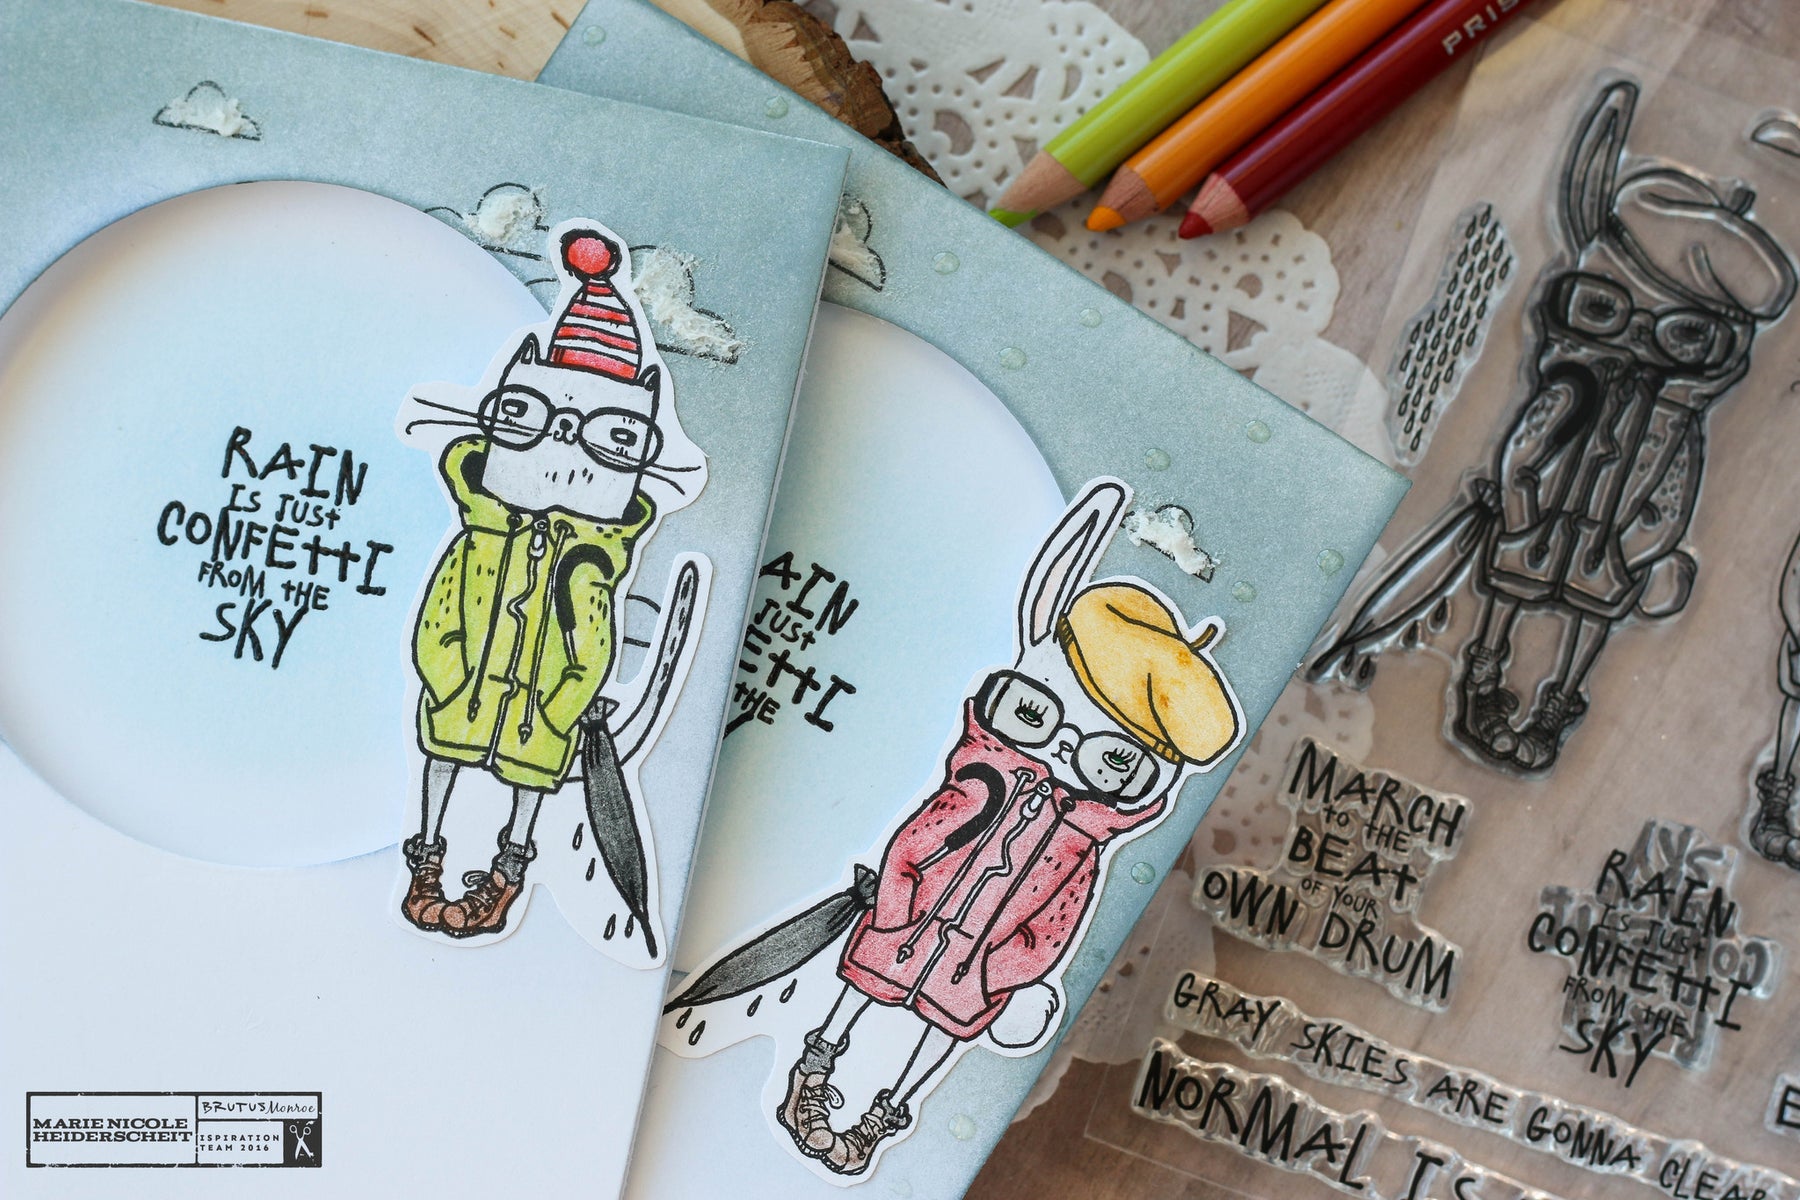 RAIN
IS JUST
CONFETTI
FROM THE
SKY
AIN
JUST
ETTI
THE
PRIS
MARCH
TO THE
BEAT
OF YOUR
OWN DRUM
RAIN
IS JUST
CONFETTI
FROM THE
SKY
GRAY SKIES ARE GONNA CLEAR
NORMAL IS
MARIE NICOLE
HEIDERSCHEIT
BRUTUS Monroe
ISPIRATION
TEAM 2016